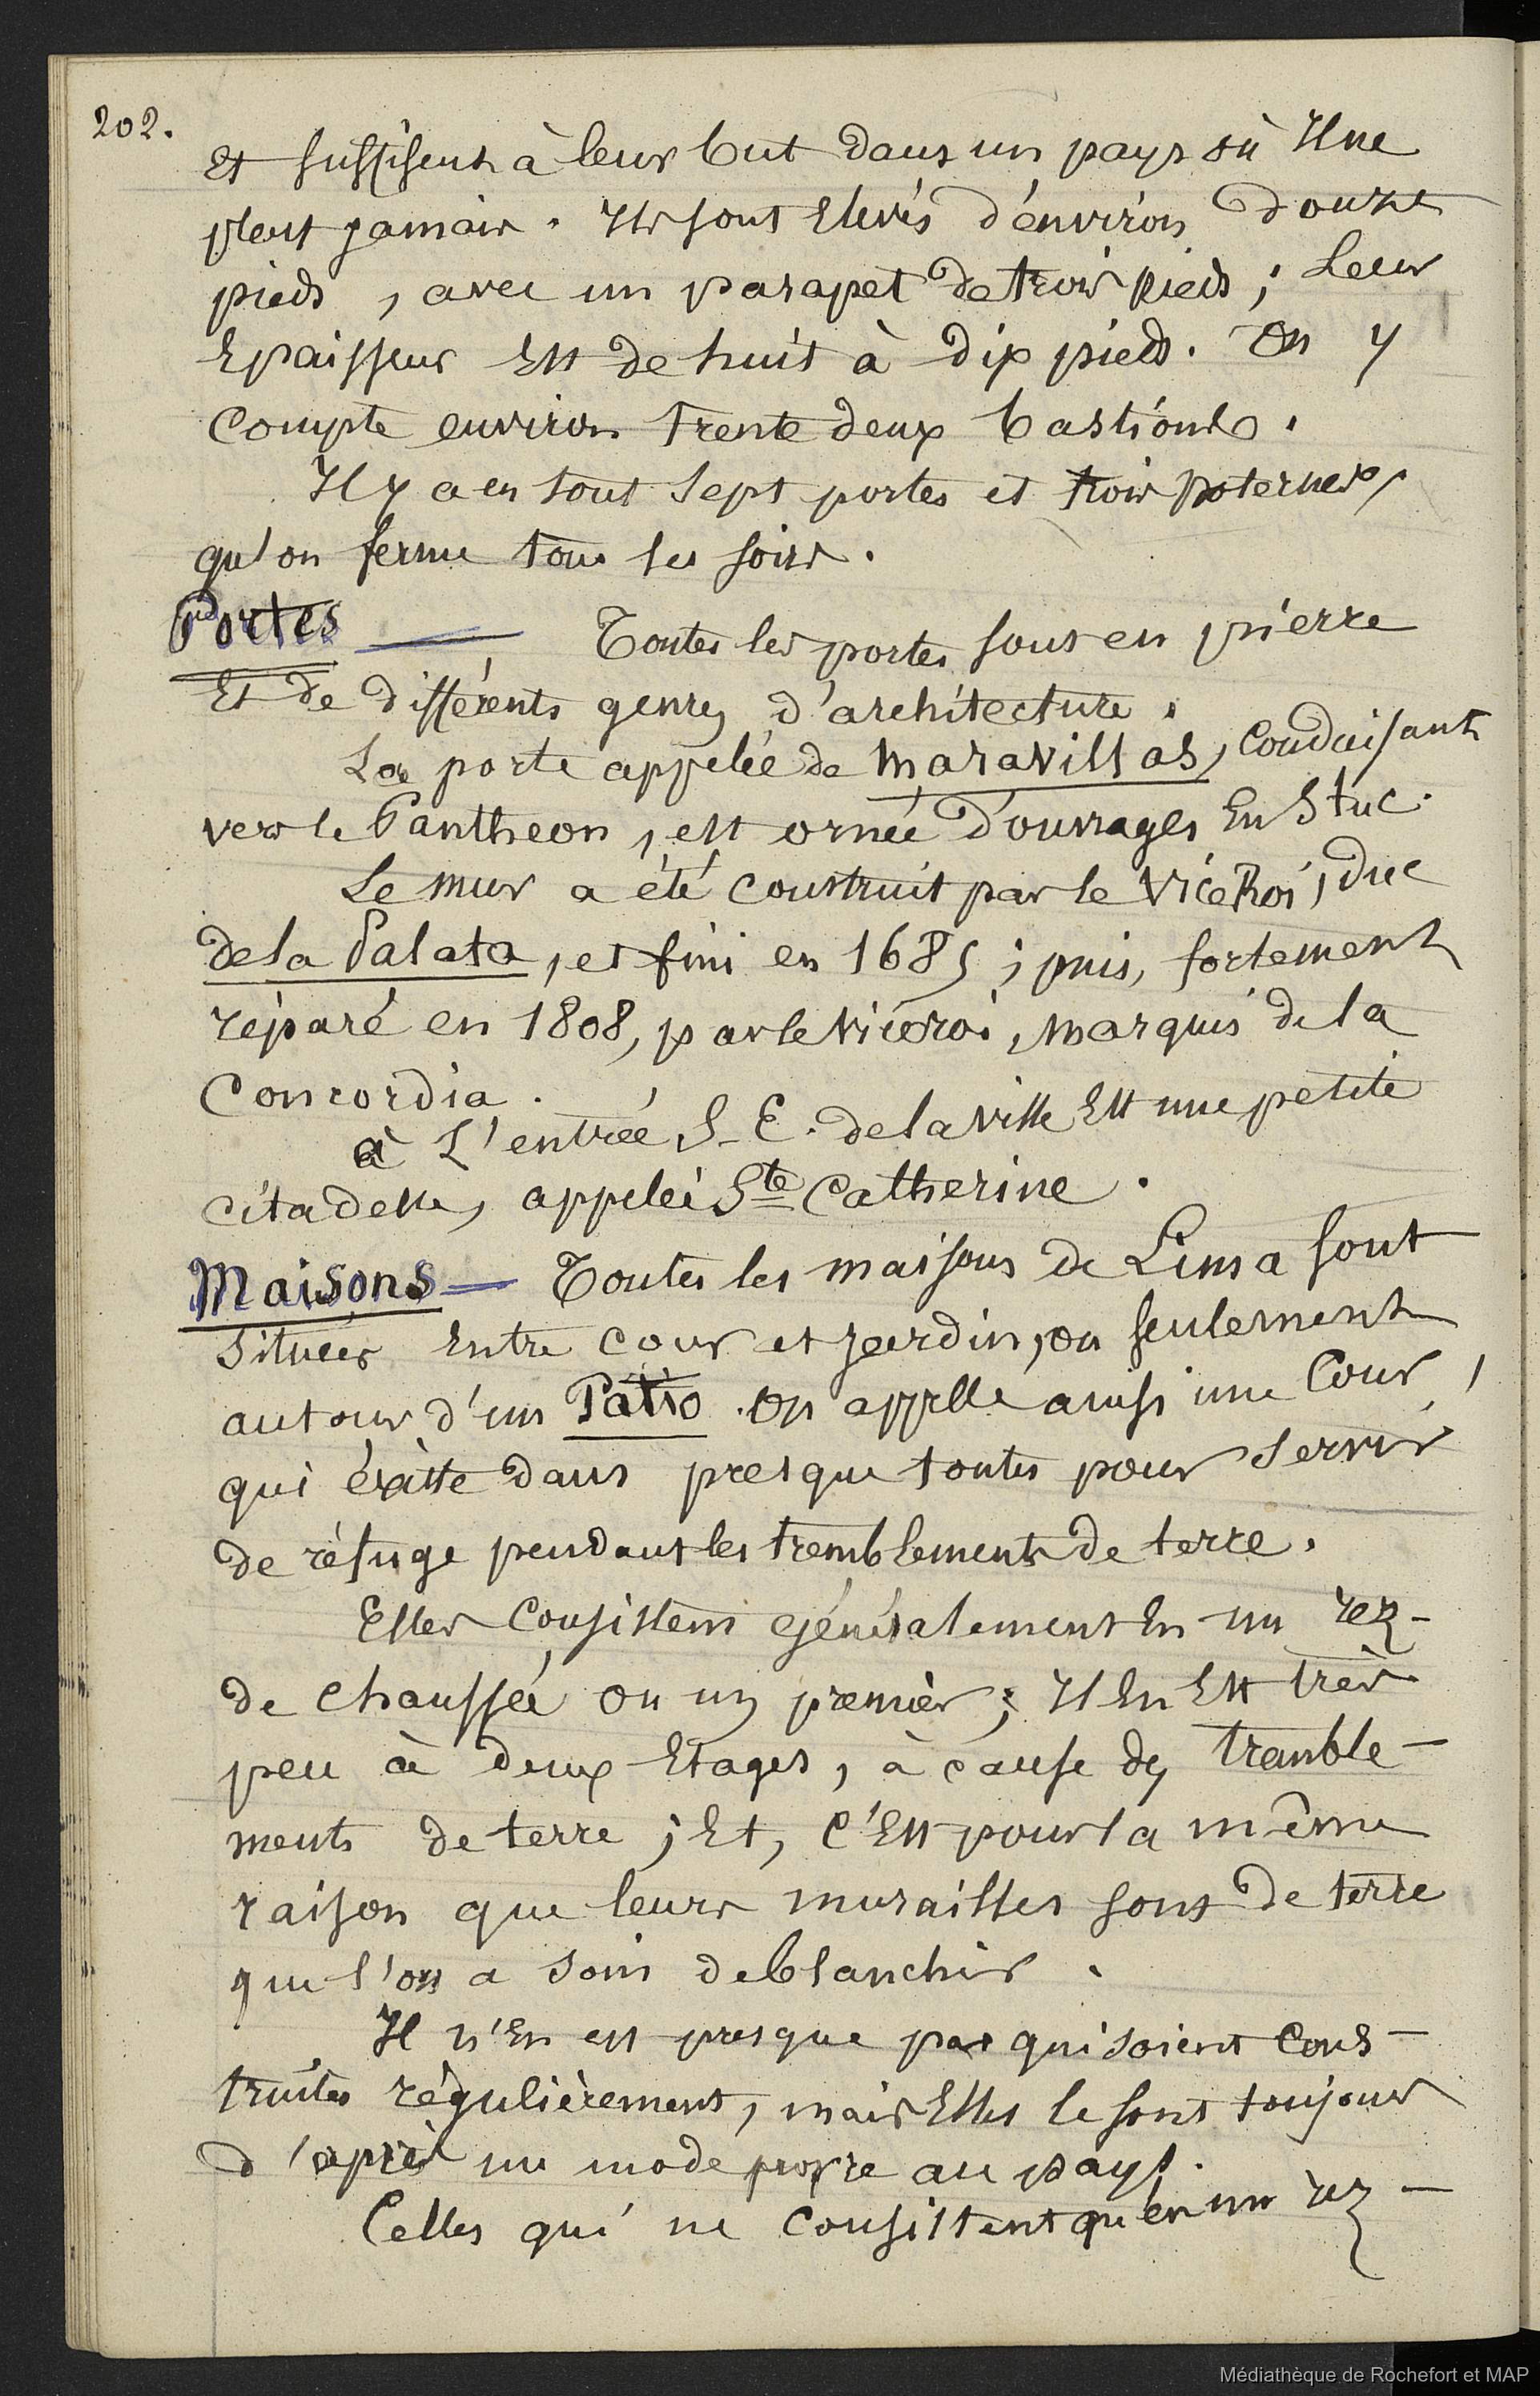 202.
Et suffisent à leur but dans un pays où Il ne
pleut jamais. Ils sont Elevés d'environ douze
pieds, avec un parapet de trois pieds; Leur
Epaisseur Est de huit à dix pieds. On y
compte environ trente deux bastions.
Il y a en tout sept portes et trois poternes,
qu'on ferme tous les soirs.
Portes — Toutes les portes sont en pierre
Et de différents genres d'architecture.
La porte appelée de Maravillas, conduisant
vers le Pantheon, est ornée d'ouvrages En Stuc.
Le mur a été construit par le ViceRoi, duc
de la Palata, et fini en 1685; puis, fortement
réparé en 1808, par le Viceroi, Marquis de la
Concordia.
à L'entrée S-E. de la ville Est une petite
citadelle, appelée Ste Catherine.
Maisons — Toutes les maisons de Lima sont
situées Entre cour et jardin, ou seulement
autour d'un Patio. On appelle ainsi une Cour,
qui éxiste dans presque toutes pour servir
de réfuge pendant les tremblements de terre.
Elles Consistent généralement En un rez-
de chaussée ou un premier; Il En Est très
peu à deux Etages, à cause des tremble-
ments de terre; Et, C'Est pour la même
raison que leurs murailles sont de terre
que l'on a soin de blanchir.
Il n'En est presque pas qui soient Cons-
truites régulièrement, mais Elles le sont toujours
d'après un mode propre au pays.
Celles qui ne Consistent qu'en un rez-
Médiathèque de Rochefort et MAP